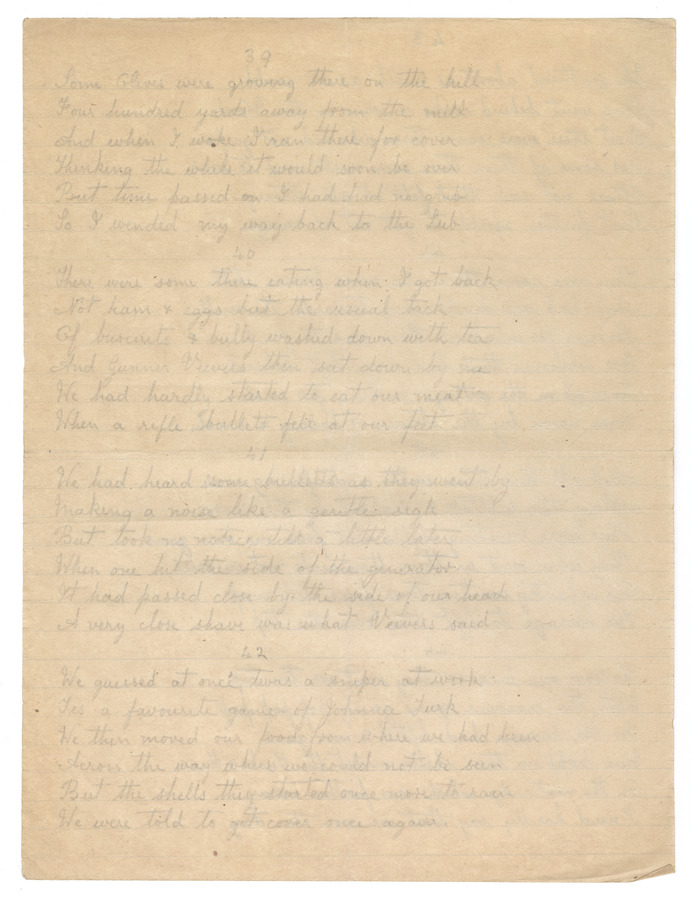 39
Some Olives were growing there on the hill
Four hundred yards away from the mill
And when I woke I ran there for cover
Thinking the while it would soon be over
But time passed on I had had no grub
So I wended my way back to the Sub
40
There were some there eating when I got back
Not ham & eggs but the usual tack
Of buscuits & bully washed down with tea
And Gunner Veivers then sat down by me
We had hardly started to eat our meat
When a rifle bullet fell at our feet
41
We had heard some bullets as they went by
Making a noise like a gentle sigh
But took no notice till a little later
When one hit the side of the generator
It had passed close by the side of our head
A very close shave was what Veivers said
42
We guessed at once twas a sniper at work
Tis a favourite game of Johnnie Turk
We then moved our food from where we had been
Across the way where we could not be seen
But the shells they started once more to
We were told to get cover once again